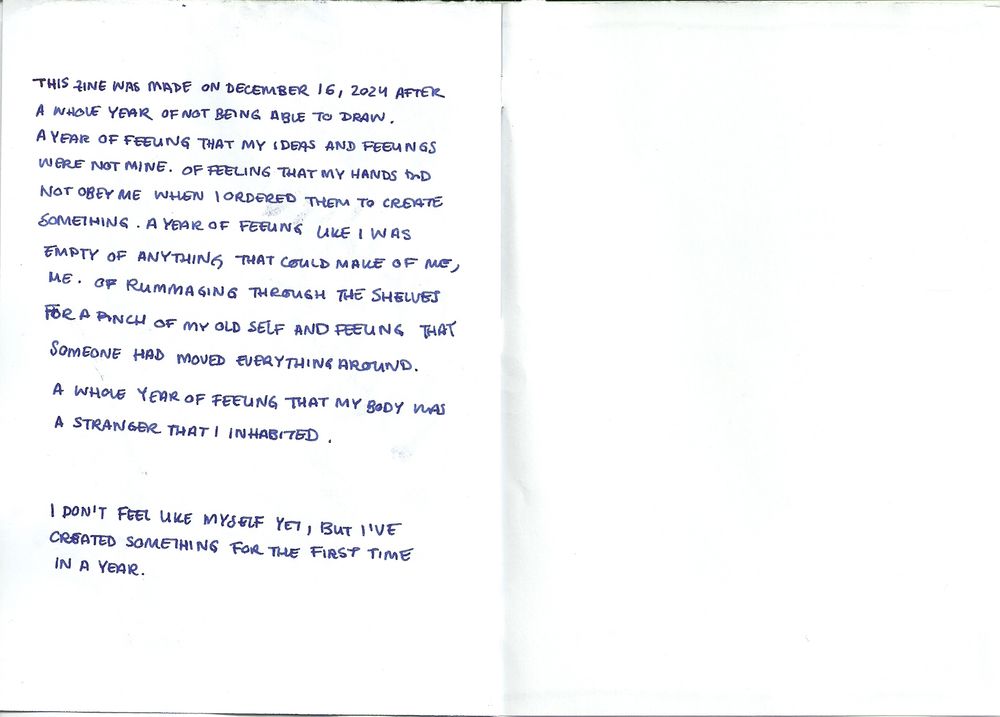 THIS ZINE WAS MADE ON DECEMBER 16, 2024 AFTER
A WHOLE YEAR OF NOT BEING ABLE TO DRAW.
A YEAR OF FEELING THAT MY IDEAS AND FEELINGS
WERE NOT MINE. OF FEELING THAT MY HANDS DID
NOT OBEY ME WHEN I ORDERED THEM TO CREATE
SOMETHING. A YEAR OF FEELING LIKE I WAS
EMPTY OF ANYTHING THAT COULD MAKE OF ME,
ME. OF RUMMAGING THROUGH THE SHELVES
FOR A PINCH OF MY OLD SELF AND FEELING THAT
SOMEONE HAD MOVED EVERYTHING AROUND.
A WHOLE YEAR OF FEELING THAT MY BODY WAS
A STRANGER THAT I INHABITED.
I DON'T FEEL LIKE MYSELF YET, BUT I'VE
CREATED SOMETHING FOR THE FIRST TIME
IN A YEAR.